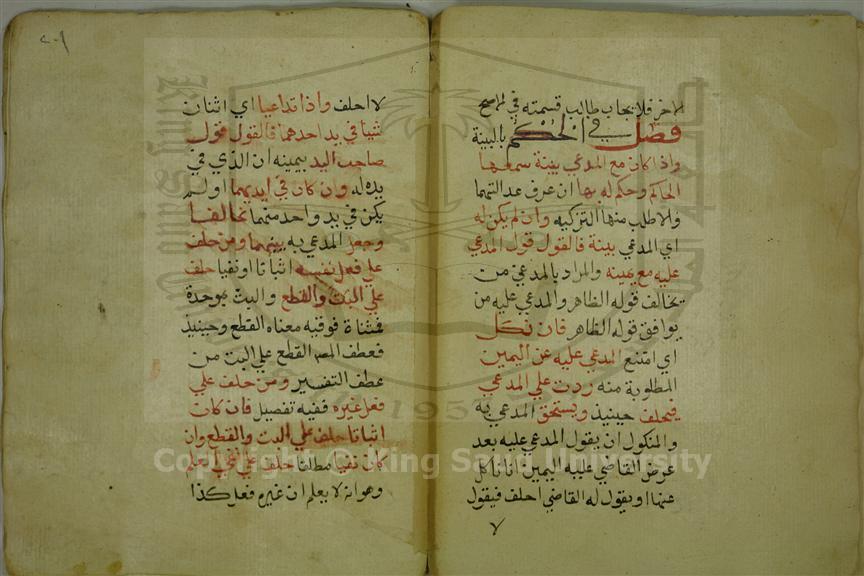 الاخر فلا يجاب طالب قسمته في الاصح
فصل في الحكم بالبينة
واذا كان مع المدعي بينة سمعها
الحاكم وحكم له بها ان عرف عدالتها
والا طلب منها التزكيه وان لم يكن له
اي المدعي بينة فالقول قول المدعي
عليه مع يمينه والمراد بالمدعي من
يخالف قوله الظاهر والمدعي عليه من
يوافق قوله الظاهر فان نكل
اي امتنع المدعي عليه عن اليمين
المطلوبة منه ردت علي المدعي
فيحلف حينيذ ويستحق المدعي به
والنكول ان يقول المدعي عليه بعد
عرض القاضي عليه اليمين انا ناكل
عنها او يقول له القاضي احلف فيقول
٧
٢٠١
لا احلف واذا تداعيا اي اثنان
شيا في يد احدهما فالقول قول
صاحب اليد بيمينه ان الذي في
يده له وان كان في ايديهما او لم
يكن في يد واحد منهما تحالفا
وجعل المدعي به بينهما ومن حلف
علي فعل نفسه اثباتا او نفيا حلف
علي البت والقطع والبت بموحدة
فمثناة فوقيه معناه القطع وحينيذ
فعطف المص القطع علي البت من
عطف التفسير ومن حلف علي
فعل غيره ففيه تفصيل فان كان
اثباتا حلف علي البت والقطع وان
كان نفيا مطلقا حلف علي نفي العلم
وهو انه لا يعلم ان غيره فعل كذا
Copyright © King Saud University
1957